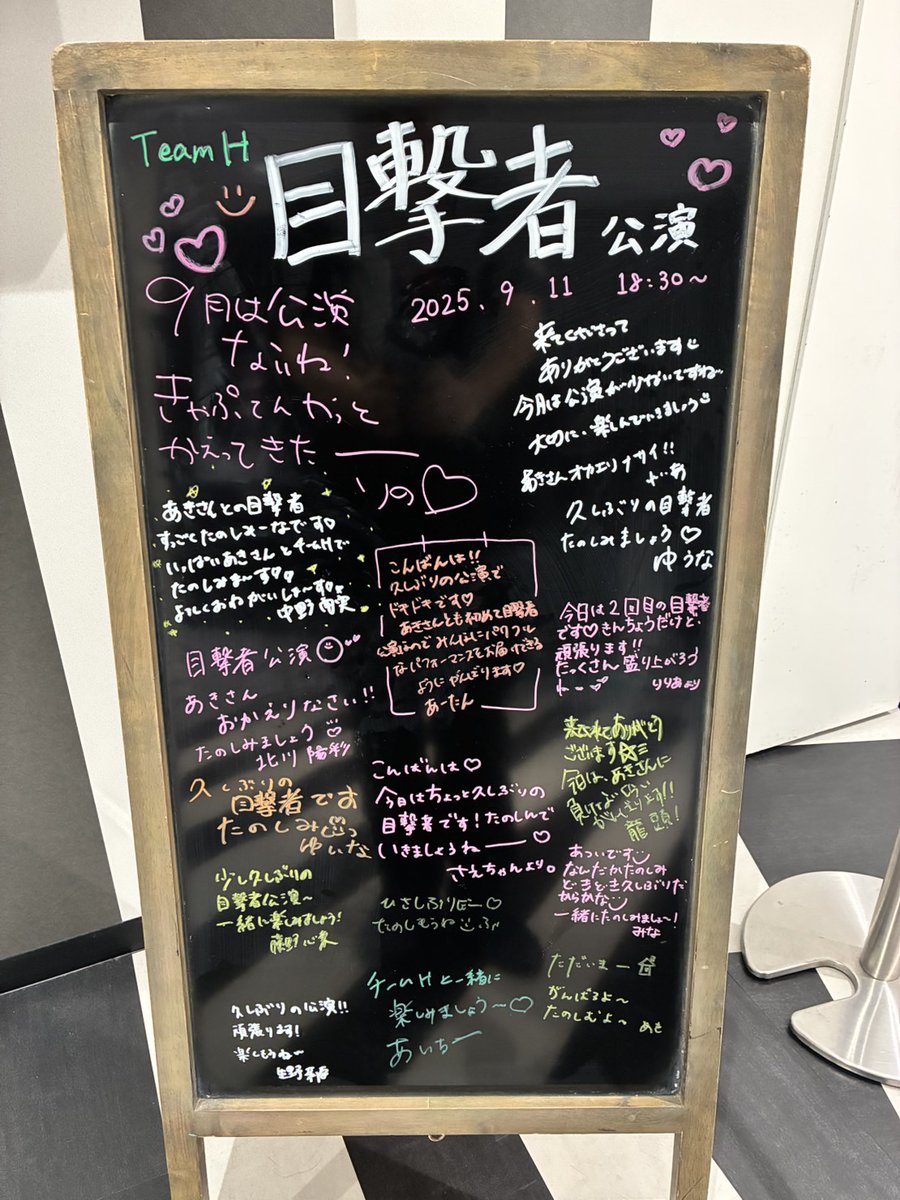 Team H
目撃者 公演
2025.9.11 18:30〜
9月は公演
ないね!
きゃぷてんがっと
かえってきたーー
りの♡
来てくださって
ありがとうございます
今月は公演が少ないですね〜
大切に、楽しんでいきましょう
あきさんオカエリナサイ!!
久しぶりの目撃者
たのしみましょう♡
ゆうな
あきさんとの目撃者
すっごくたのしみーなです
いっぱいあきさんとチームHで
たのしみまーす
よろしくおねがいしまーす
こんばんは!!
久しぶりの公演で
ドキドキです♡
あきさんとも初めて目撃者
公演なのでみんなにパワフル
なパフォーマンスをお届けできる
ようにがんばります♡
あーたん
今日は2回目の目撃者
です♡きんちょうだけど、
頑張ります!!
たっくさん盛り上がろう
ねー
りりあより
目撃者公演
あきさん
おかえりなさい!!
たのしみましょう
北川 陽彩
久しぶりの
目撃者です
たのしみ
ゆいな
こんばんは♡
今日はちょっと久しぶりの
目撃者です!たのしんで
いきましょうねーー♡
さえちゃんより。
来てくれてありがとう
ございます
今日は、あきさんに
負けないよう
がんばります!!
龍頭!
少し久しぶりの
目撃者公演〜
一緒に楽しみましょう!
ひさしぶりだー♡
たのしもうね
あついです
なんだかたのしみ
どきどき久しぶりだ
からかな
一緒にたのしみましょ〜!
みな
久しぶりの公演!!
頑張ります!
楽しもうね〜
チームHと一緒に
楽しみましょう〜♡
あいちー
ただいまー
がんばるよ〜
たのしむよ〜 あき